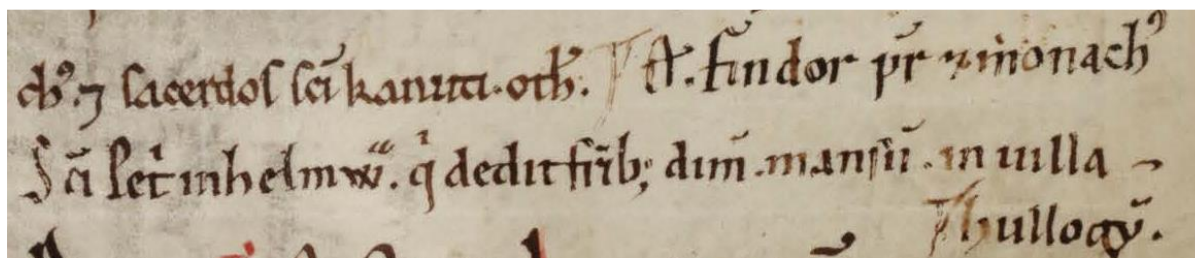 ch⁹. ⁊ sacerdos sc̄i kanuti. oth̄. S̄t. sindor pr̄ ⁊ monach⁹
Sc̄i Pet̄ in helmw̄. q̇ dedit fr̄ib; dim̄. mansū. in uilla
hullogy̅.